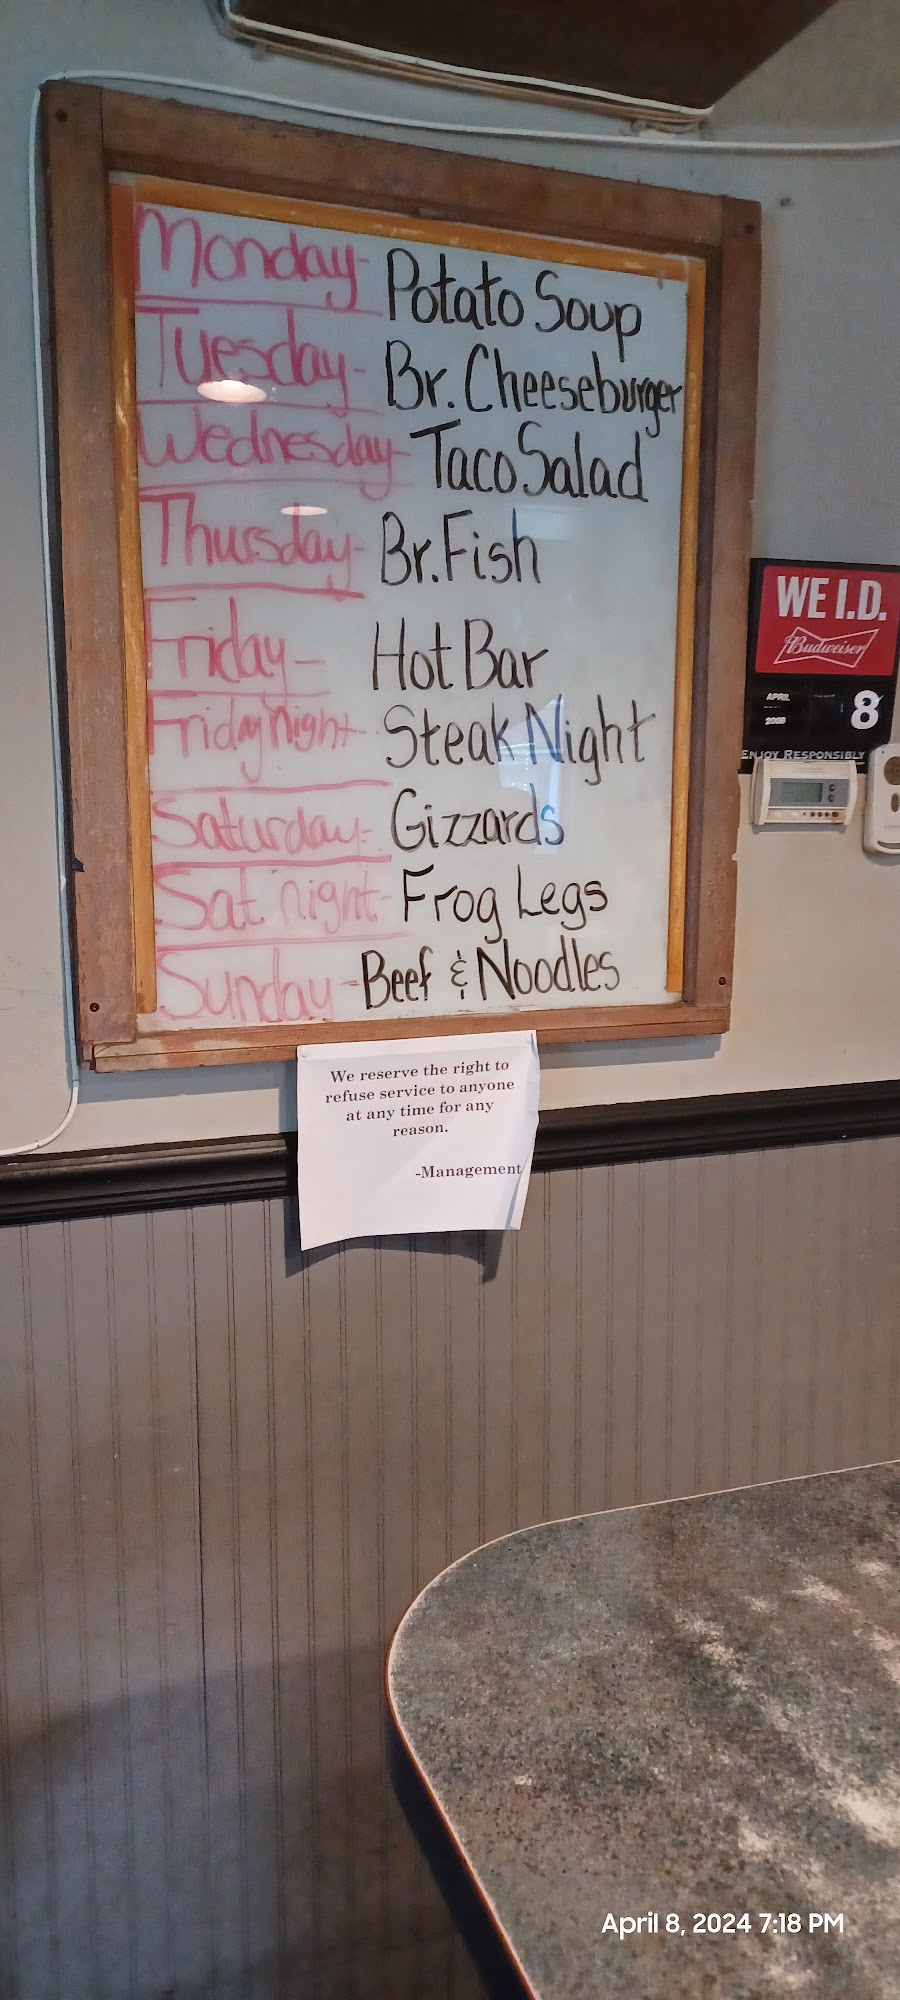 Monday- Potato Soup
Tuesday- Br. Cheeseburger
Wednesday- Taco Salad
Thursday- Br. Fish
Friday- Hot Bar
Friday Night- Steak Night
Saturday- Gizzards
Sat night- Frog Legs
Sunday- Beef & Noodles
WE I.D.
Budweiser
APRIL
8
2003
ENJOY RESPONSIBLY
We reserve the right to
refuse service to anyone
at any time for any
reason.
-Management
April 8, 2024 7:18 PM